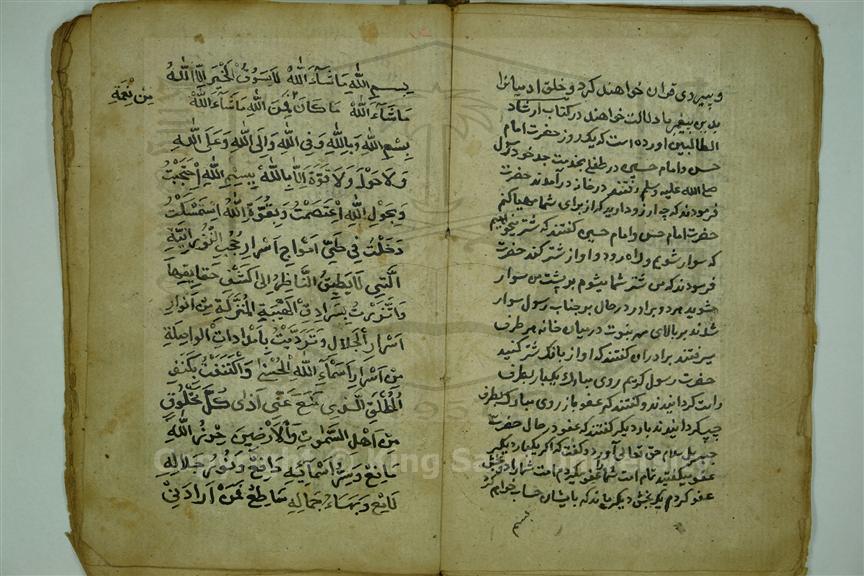 و پیروی قران خواهند کرد و خلق ادمیانرا
بدین پیغمبر دلالت خواهند در کتاب ارشاد
الطالبین اورده است که یکروز حضرت امام
حسن و امام حسین در طفلی بخدمت جد خود رسول
صلی الله علیه وسلم رفتند در خانه درآمدند حضرت
فرمودند که چه ارزو دارید که از برای شما مهیا کنم
حضرت امام حسن و امام حسین گفتند که شتر میخواهیم
که سوار شویم و راه رود و اواز شتر کند حضرت
فرمودند که من شتر شما میشوم بر پشت من سوار
شوید هر دو برادر در حال بر جناب رسول سوار
شدند بر بالای مهر نبوت در میان خانه هر طرف
میرفتند برادران گفتند که اواز بانک شتر کنید
حضرت رسول کریم روی مبارک یکبار بطرف
راست کردانیدند و گفتند که عفو باز روی مبارک بطرف
چپ کردانیدند بار دیکر گفتند که عفو در حال حضرت
جبریل سلام حق تعالی آورد و گفت که اگر یکبار دیکر
عفو میگفتید تمام امت شما عفو میکردم
عفو کردم یک بخش دیکر ماند که بایشان حساب خواهم کرد
بسم
بسم الله ماشآء الله لا يسوق الخير الا الله
ماشآء الله ما كان فمن الله ماشآء الله
من نعمة
بسم الله وبالله وفى الله والى الله وعلى الله
ولا حول ولا قوة الا بالله بسم الله احتجبت
وبحول الله اعتصمت وبقوة الله استمسكت
دخلت فى طي امواج اسرار حجب النورانية
التي لا يطيق الناظر الى كشف حقايقها
واتزرت بسرادق الهيبة المنزلة من انوار
اسرار الجلال وترديت بامدادات الواصلة
من اسرار اسمآء الله الحسنى واكتنفت بكنف
المطلق الذى منع عنى اذى كل مخلوق
من اهل السموت والارضين حرز الله
مانع وسر اسمائه دافع ونور جلاله
لامع وبهاء جماله ساطع فمن ارادنى